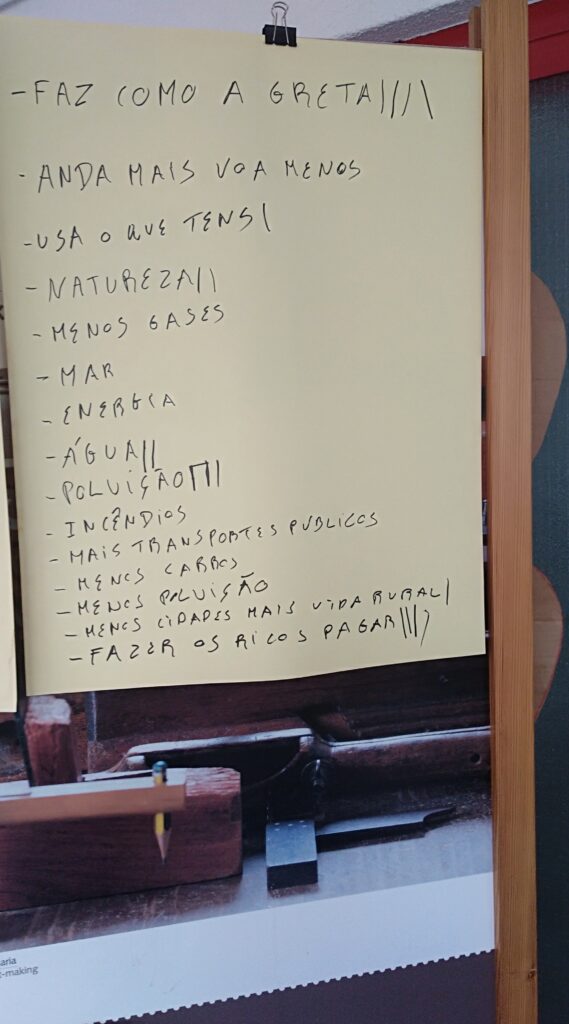 - FAZ COMO A GRETA||||
- ANDA MAIS VOA MENOS
- USA O QUE TENS|
- NATUREZA||
- MENOS GASES
- MAR
- ENERGIA
- ÁGUA||
- POLUIÇÃO||||
- INCÊNDIOS
- MAIS TRANSPORTES PÚBLICOS
- MENOS CARROS
- MENOS POLUIÇÃO
- MENOS CIDADES MAIS VIDA RURAL|
- FAZER OS RICOS PAGAR||||
aria
-making